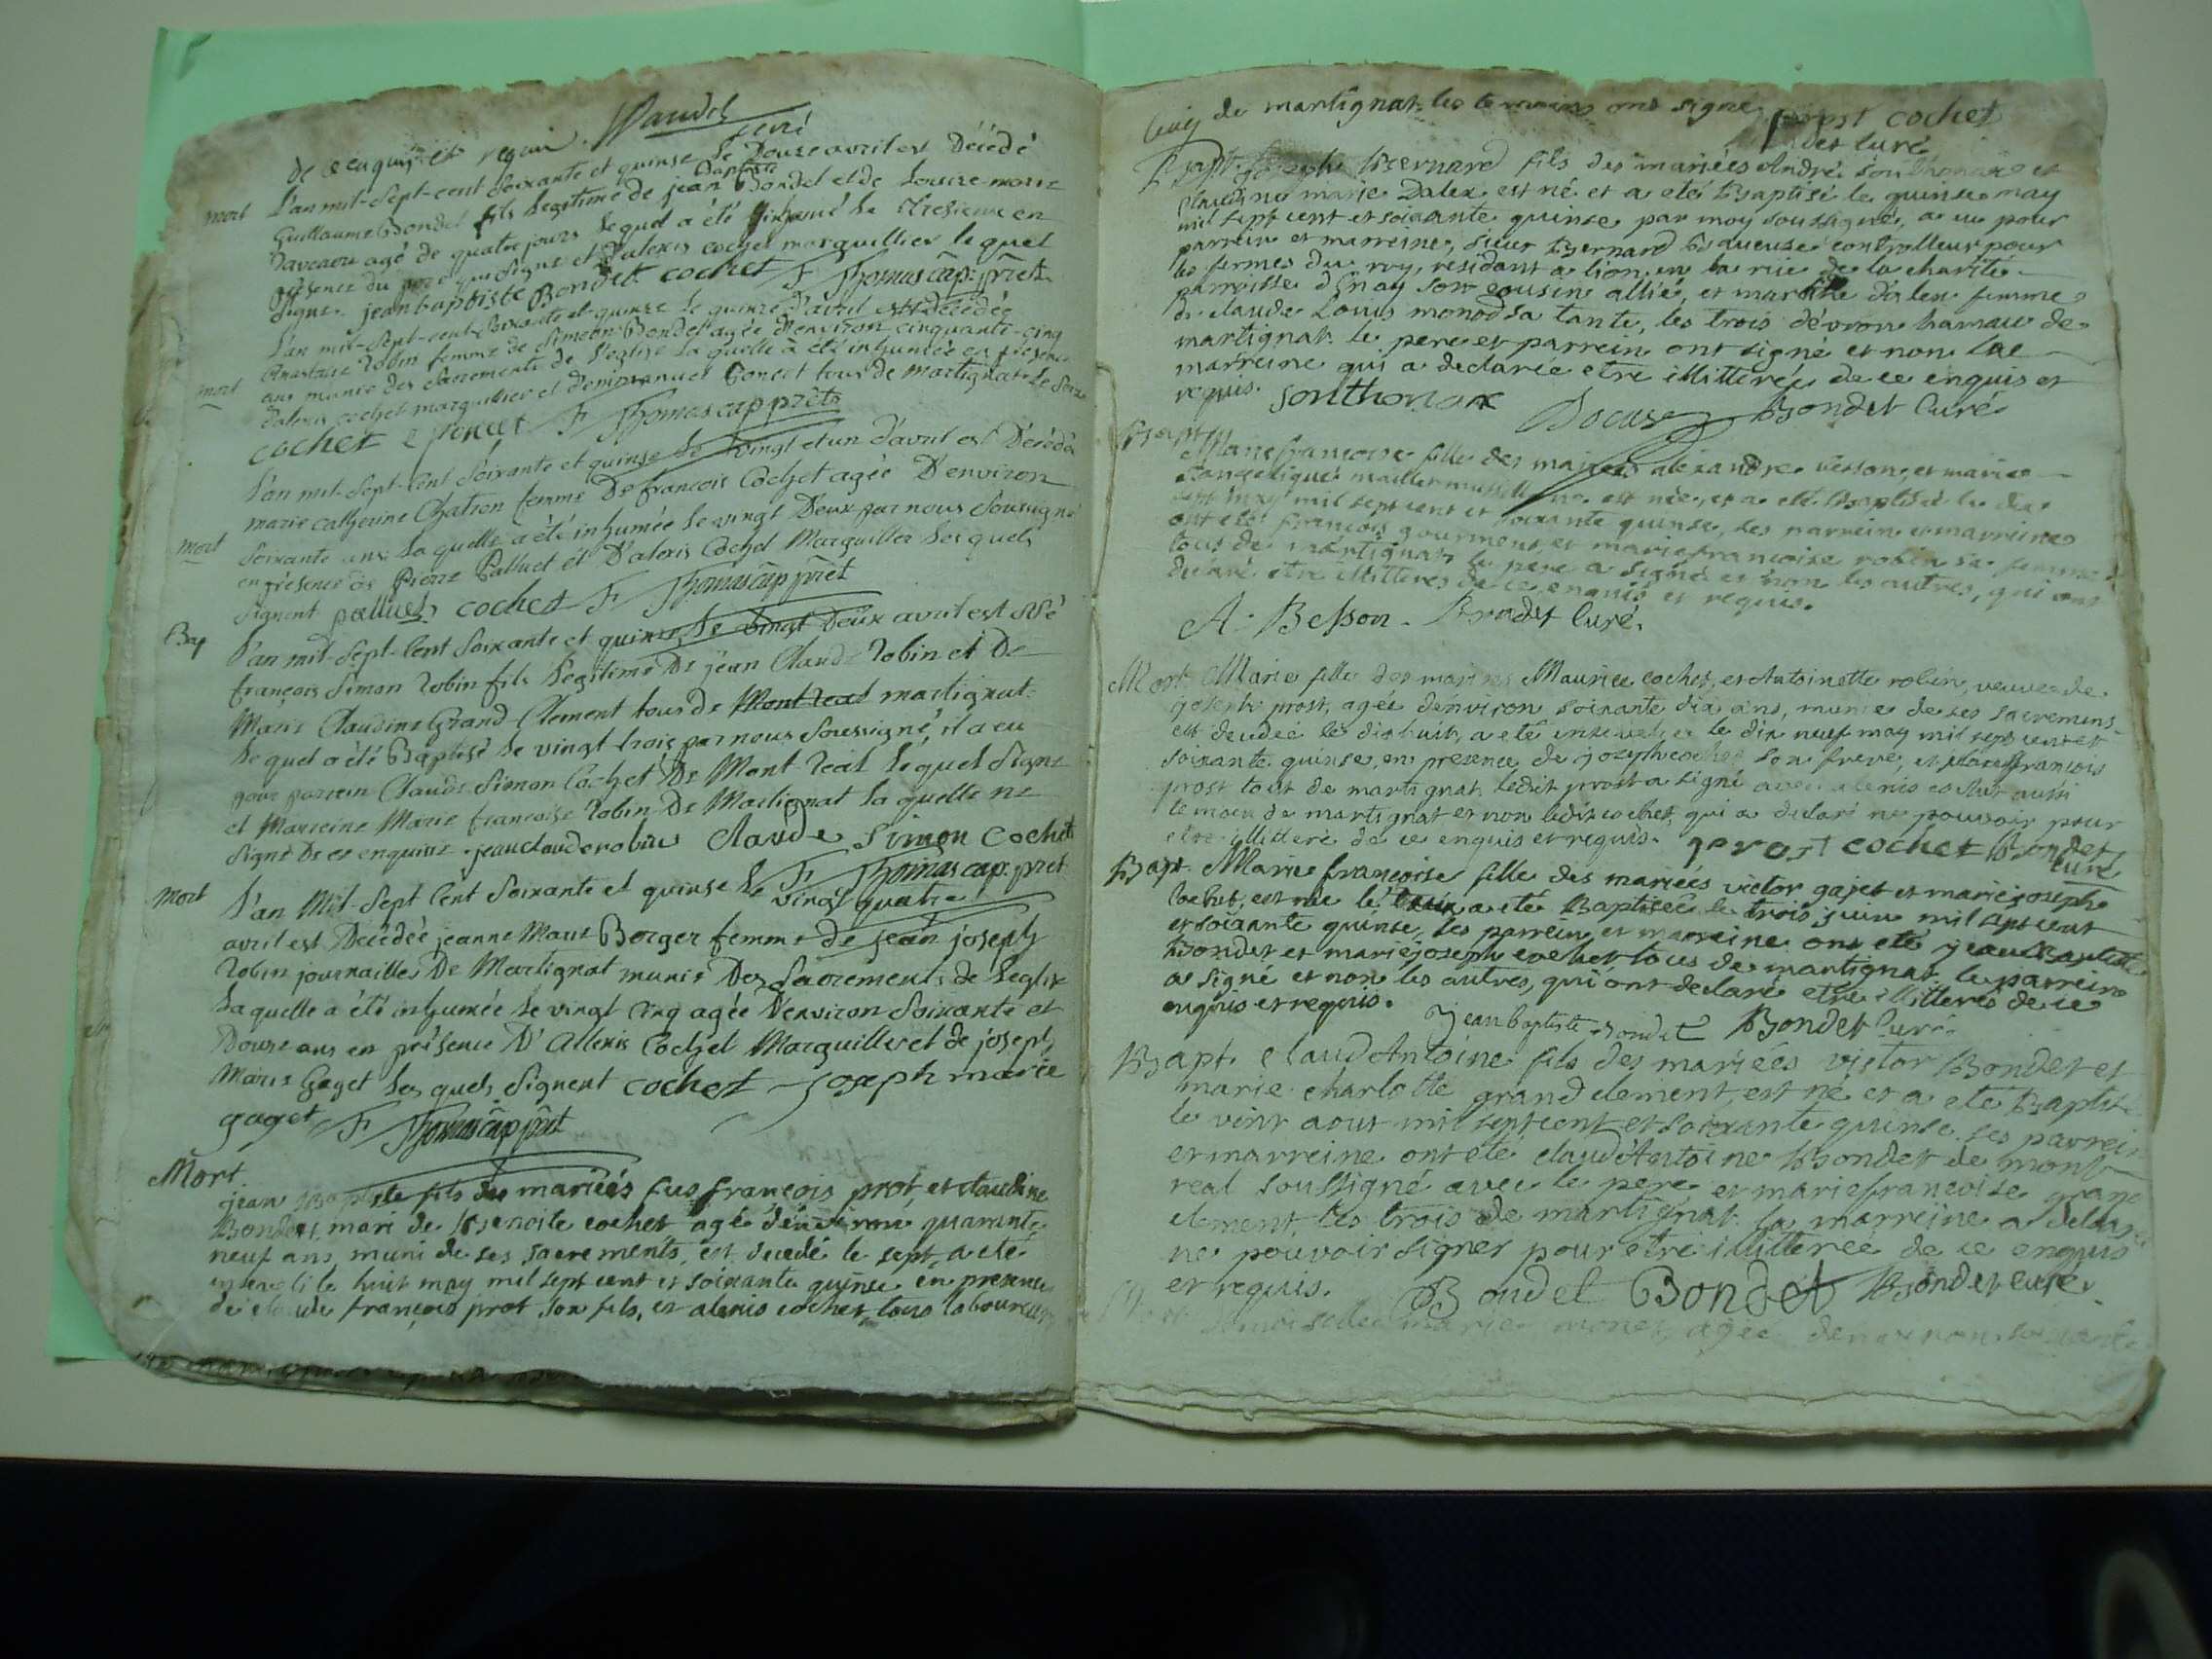 de ce enquis et requis. Baudet
curé
mort L'an mil-sept-cent soixante et quinse le Douze avril est Décédé
Baptiste
Guillaume Bondet fils legitime de jean Bondet et de Louise-marie
agé de quatre jours lequel a été inhumé le treisieme en
présence du père qui signe et d'alexis cochet marguillier lequel
signe. jean baptiste Bondet cochet F Thomas cap: prêt
L'an mil-sept-cent-soixante et-quinze le quinze d'avril est décédée
mort Anastasie Robin femme de Simeon Bondet agée d'environ cinquante-cinq
ans munie des sacrements de l'eglise laquelle à été inhumée en présence
d'alexis cochet marguillier et d'emmanuel Poncet tous de martignat le seize
cochet e poncet F Thomas cap prêt
L'an mil-sept-cent soixante et quinse le vingt et un d'avril est Décédée
marie catherine Chatron femme De françois Cochet agée D'environ
mort soixante ans laquelle a été inhumée le vingt Deux par nous soussigné
en présence de Pierre Palluet et D'alexis Cochet Marguillier lesquels
signent palluet cochet F Thomas cap prêt
Bap L'an mil-sept-cent soixante et quinze le vingt Deux avril est Né
françois Simon Robin fils Légitime De jean Claude Robin et De
Marie Claudine Grand-Clement tous de Mont-real martignat.
Lequel a été Baptisé le vingt trois par nous soussigné, il a eu
pour parrein Claude Simon Cochet De Mont-real lequel signe
et Marreine Marie françoise Robin De Martignat laquelle ne
signe De ce enquise. jean claude robin claude simon cochet
F Thomas cap: prêt
mort L'an Mil-sept Cent soixante et quinse le vingt quatre
avril est Decédée jeanne Marie Borger femme de jean joseph
Robin journaillier De Martignat munie Des sacrements de L'eglise
Laquelle a été inhumée le vingt cinq agée D'environ soixante et
Douze ans en présence D'Allexis Cochet Marguillier et de joseph
Marie Gaget lesquels signent cochet joseph marie
gaget F Thomas cap prêt
Mort.
jean Baptiste fils des mariées feus françois prot, et claudine
Bondet, mari de Benoite cochet agé d'environ quarante
neuf ans, muni de ses sacrements, est decedé le sept, a eté
enseveli le huit may mil sept cent et soixante quinse en presence
de claude françois prot son fils, et alexis cochet, tous laboureurs
de martignat. les temoins ont signé prost cochet
Bondet curé
Bapt. joseph Bernard fils des mariées André Sonthonax et
claudine marie Dalex est né et a eté Baptisé le quinse may
mil sept cent et soixante quinse par moy soussigné, a eu pour
parrein et marreine, sieur Bernard controlleur pour
les fermes du roy, résidant a lion en la rüe de la charité
parroisse d'Enay son cousin allié, et marthe dalex femme
de claude Louis monod sa tante, les trois d'évron hamau de
martignat. le pere et parrein ont signé et non la
marreine qui a declarée etre illitterée de ce enquis et
requis. Sonthonax Bondet Curé
Bapt. Marie francoise fille des mariées alexandre besson, et marie
angelique est née, et a eté Baptisée le dix
sept may mil sept cent et soixante quinse, ses parrein et marreine
ont eté françois gourmens, et marie francoise robin sa femme
tous de martignat. le pere a signé et non les autres, qui ont
declaré etre illitteres de ce enquis et requis.
A. Besson. Bondet Curé.
Mort Marie fille des mariées Maurice cochet, et Antoinette robin, veuve de
joseph prost, agée d'environ soixante dix ans, munie de ses sacremens
est decedée le dix huit, a eté ensevelie le dix neuf may mil sept cent et
soixante quinse, en presence de joseph cochet son frere, et claude françois
prost tout de martignat. ledit prost a signé avec alexis cochet aussi
temoin de martignat et non ledit cochet, qui a declaré ne pouvoir pour
etre illitteré de ce enquis et requis. prost cochet Bondet
curé
Bapt. Marie françoise fille des mariées victor gaget et marie joseph
cochet, est née le trois a eté Baptisée le trois juin mil sept cent
et soixante quinse, les parrein et marreine ont eté jean Baptiste
Bondet et marie joseph cochet tous de martignat. le parrein
a signé et non les autres, qui ont declaré etre illitteres de ce
enquis et requis. jean baptiste Bondet Bondet Curé.
Bapt. Claud Antoine fils des mariées victor Bondet et
marie charlotte grand clement, est né et a eté Baptisé
le vint aout mil sept cent et soixante quinse. ses parrein
et marreine ont eté claud'Antoine Bondet de mont
real soussigné avec le pere et marie francoise grand
clement, les trois de martignat. la marreine a declaré
ne pouvoir signer pour etre illitterée de ce enquis
et requis. Bondet Bondet Bondet curé.
marie monet, agée d'environ soixante